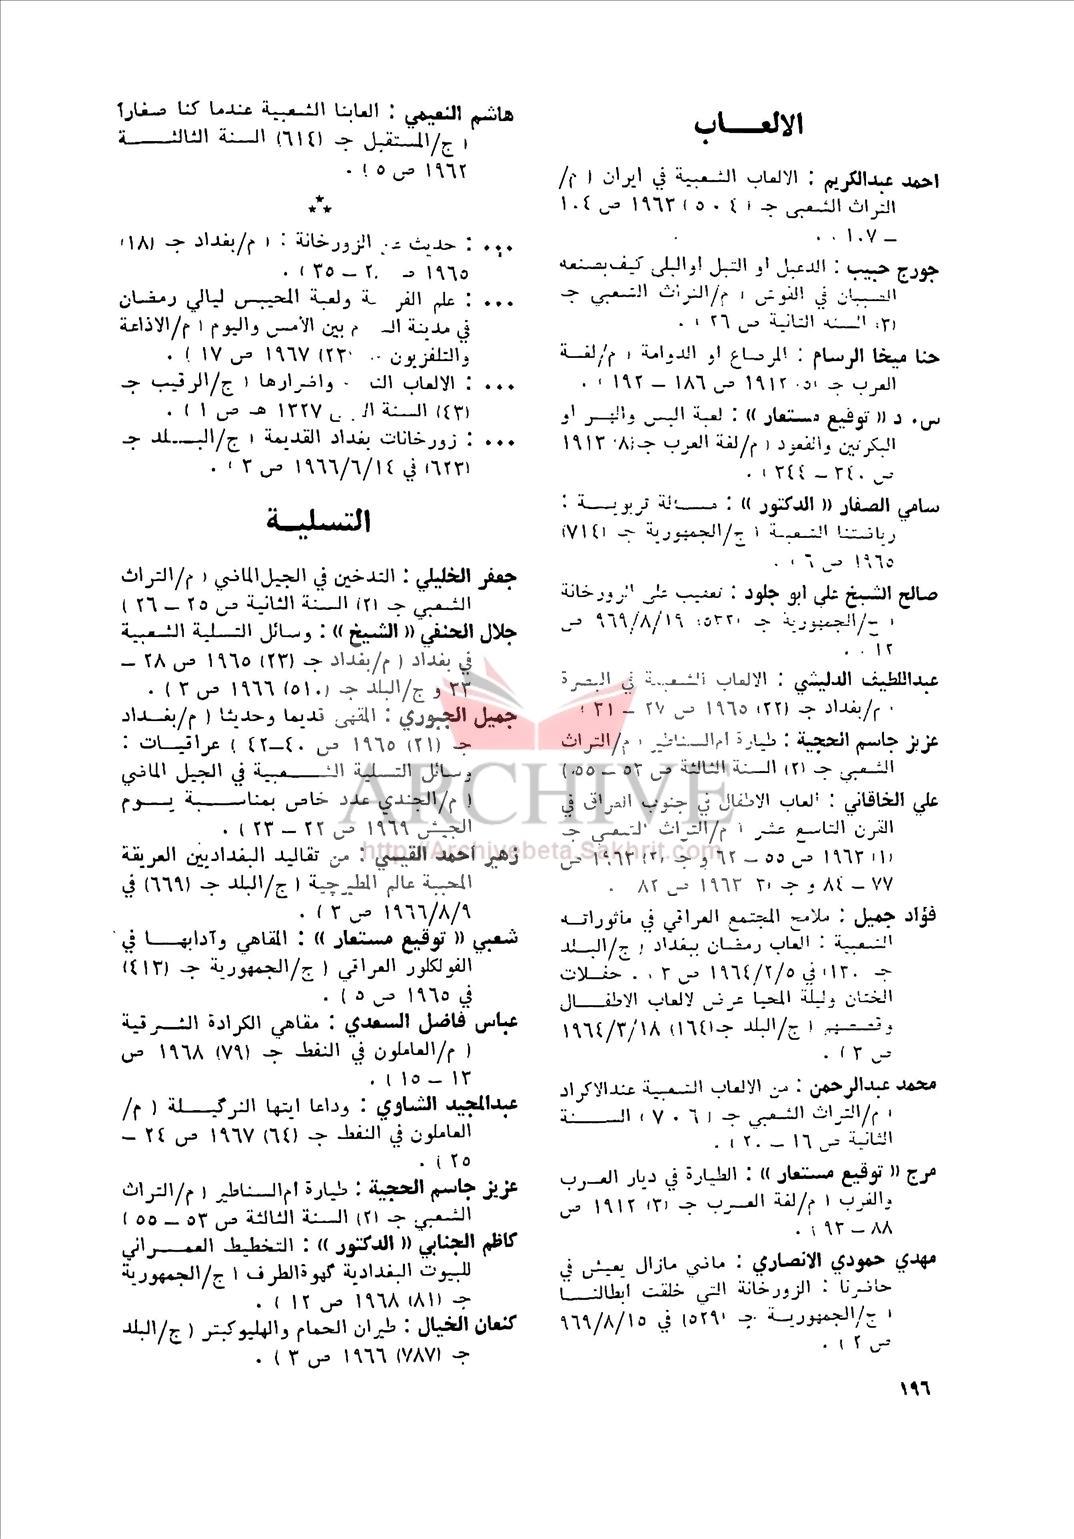 الالعـــاب
احمد عبدالكريم : الالعاب الشعبية في ايران ( م/
التراث الشعبي جـ ( ٤ ، ٥ ) ١٩٦٣ ص ١٠٤
– ١٠٧ .
جورج حبيب : الدعبل او التبل اوالبلى كيف يصنعه
الصبيان في القوش ( م/التراث الشعبي جـ
(٣) السنة الثانية ص ٢٦ ) .
حنا ميخا الرسام : المرصاع او الدوامة ( م/لغـة
العرب جـ (٥) ١٩١٢ ص ١٨٦ – ١٩٢ ) .
س. د (( توقيع مستعار )) : لعبة البس والهر او
البكرتين والقعود ( م/لغة العرب جـ (٨) ١٩١٣
ص ٢٤٠ – ٢٤٤ ) .
سامي الصفار (( الدكتور )) : مسـألة تربويــة :
رياضتنا الشعبية ( ج/الجمهورية جـ (٧١٤)
١٩٦٥ ص ٦ ) .
صالح الشيخ علي ابو جلود : تعقيب على الزورخانة
( ج/الجمهورية جـ ٩٦٩/٨/١٩ ص
١٢ ) .
عبداللطيف الدليشي : الالعاب الشعبية في البصرة
( م/بغداد جـ (٢٢) ١٩٦٥ ص ٢٧ – ٣١ )
عزيز جاسم الحجية : طيارة ام السناطير ( م/التراث
الشعبي جـ (٢) السنة الثالثة ص ٥٣ – ٥٥ )
علي الخاقاني : العاب الاطفال في جنوب العراق في
القرن التاسع عشر ( م/التراث الشعبي جـ
(١) ١٩٦٣ ص ٥٥ – ٦٢ و جـ (٢) ١٩٦٣ ص
٧٧ – ٨٤ و جـ (٣) ١٩٦٣ ص ٨٢ .
فؤاد جميل : ملامح المجتمع العراقي في مأثوراتـه
الشعبية : العاب رمضان ببغداد ( ج/البـلد
جـ في ١٩٦٤/٢/٥ ص ٣ ) . حفـلات
الختان وليلة المحيا عرض لالعاب الاطفــال
وقصصهم ( ج/البلد جـ (١٦٤) ١٩٦٤/٣/١٨
ص ٣ ) .
محمد عبدالرحمن : من الالعاب الشعبية عند الاكراد
( م/التراث الشعبي جـ ( ٦ ، ٧ ) الســنة
الثانية ص ١٦ – ٢٠ ) .
مرج (( توقيع مستعار )) : الطيارة في ديار العـرب
والغرب ( م/لغة العــرب جـ (٣) ١٩١٢ ص
٨٨ – ٩٣ ) .
مهدي حمودي الانصاري : ماضي مازال يعيش في
حاضرنا : الزورخانة التي خلقت ابطالنــا
( ج/الجمهوريــة جـ (٥٢٩) في ٩٦٩/٨/١٥
ص ٢ ) .
هاشم النعيمي : العابنا الشعبية عندما كنا صغارا
( ج/المستقبل جـ (٦١٤) السنة الثالثـــة
١٩٦٢ ص ٥ ) .
... : حديث عن الزورخانة : ( م/بغداد جـ (١٨)
١٩٦٥ – ٣٥ ) .
... : علم ولعبة المحيبس ليالي رمضان
في مدينة بين الأمس واليوم ( م/الاذاعة
والتلفزيون ١٩٦٧ ص ١٧ ) .
... : الالعاب واضرارها ( ج/الرقيب جـ
(٤٣) السنة ١٣٢٧ هـ ص ١ ) .
... : زورخانات بغداد القديمة ( ج/البــلد جـ
(٦٢٣) في ١٩٦٦/٦/١٤ ص ٣ ) .
التسليـة
جعفر الخليلي : التدخين في الجيل الماضي ( م/التراث
الشعبي جـ (٢) السنة الثانية ص ٢٥ – ٢٦ )
جلال الحنفي (( الشيخ )) : وسائل التسلية الشعبية
في بغداد ( م/بغداد جـ (٢٣) ١٩٦٥ ص ٢٨ –
٣٣ و ج/البلد جـ (٥١٠) ١٩٦٦ ص ٣ ) .
جميل الجبوري : المقهى قديما وحديثا ( م/بغـداد
جـ (٢١) ١٩٦٥ ص ٤٠–٤٢ ) عراقيـات :
وسائل التسلية الشــعبية في الجيل الماضي
( م/الجندي عدد خاص بمناســبة يــوم
الجيش ١٩٦٩ ص ٢٢ – ٢٣ ) .
زهير احمد القيسي : من تقاليد البغداديين العريقة
المحببة عالم المطيرجية ( ج/البلد جـ (٦٦٩) في
١٩٦٦/٨/٩ ص ٣ ) .
شعبي (( توقيع مستعار )) : المقاهي وآدابهــا في
الفولكلور العراقي ( ج/الجمهورية جـ (٤١٣)
في ١٩٦٥ ص ٥ ) .
عباس فاضل السعدي : مقاهي الكرادة الشـرقية
( م/العاملون في النفط جـ (٧٩) ١٩٦٨ ص
١٣ – ١٥ ) .
عبدالمجيد الشاوي : وداعا ايتها النركيـــلة ( م/
العاملون في النفط جـ (٦٤) ١٩٦٧ ص ٢٤ –
٢٥ ) .
عزيز جاسم الحجية : طيارة ام السناطير ( م/التراث
الشعبي جـ (٢) السنة الثالثة ص ٥٣ – ٥٥ )
كاظم الجنابي (( الدكتور )) : التخطيط العمــراني
للبيوت البغدادية كهوة الطرف ( ج/الجمهورية
جـ (٨١) ١٩٦٨ ص ١٢ ) .
كنعان الخيال : طيران الحمام والهليوكبتر ( ج/البلد
جـ (٧٨٧) ١٩٦٦ ص ٣ ) .
١٩٦
ARCHIVE
http://Archivebeta.Sakhrit.com